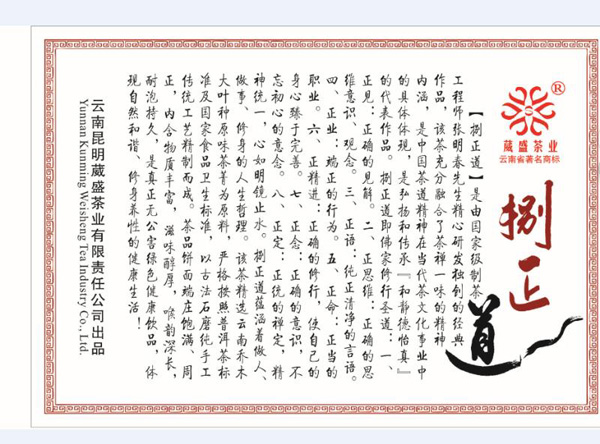 ®
葳盛茶业
云南省著名商标
捌正道
【捌正道】是由国家级制茶
工程师张明春先生精心研发独创的经典
作品，该茶充分融合了茶禅一味的精神
内涵，是中国茶道精神在当代茶文化事业中
的具体体现，是弘扬和传承『和静德怡真』
的代表作品。捌正道即佛家修行圣道：一、
正见：正确的见解。二、正思维：正确的思
维意识、观念。三、正语：纯正清净的言语。
四、正业：端正的行为。五、正命：正当的
职业。六、正精进：正确的修行，使自己的
身心臻于完善。七、正念：正确的意识，不
忘初心的意念。八、正定：正统的禅定，精
神统一，心如明镜止水。捌正道蕴涵着做人、
做事、修身的人生哲理。该茶精选云南乔木
大叶种原味茶菁为原料，严格按照普洱茶标
准及国家食品卫生标准，以古法石磨纯手工
传统工艺精制而成。茶品饼面端庄饱满、周
正，内含物质丰富，滋味醇厚，喉韵深长，
耐泡持久，是真正无公害绿色健康饮品，体
现自然和谐、修身养性的健康生活！
云南昆明葳盛茶业有限责任公司出品
Yunnan Kunming Weisheng Tea Industry Co., Ltd.